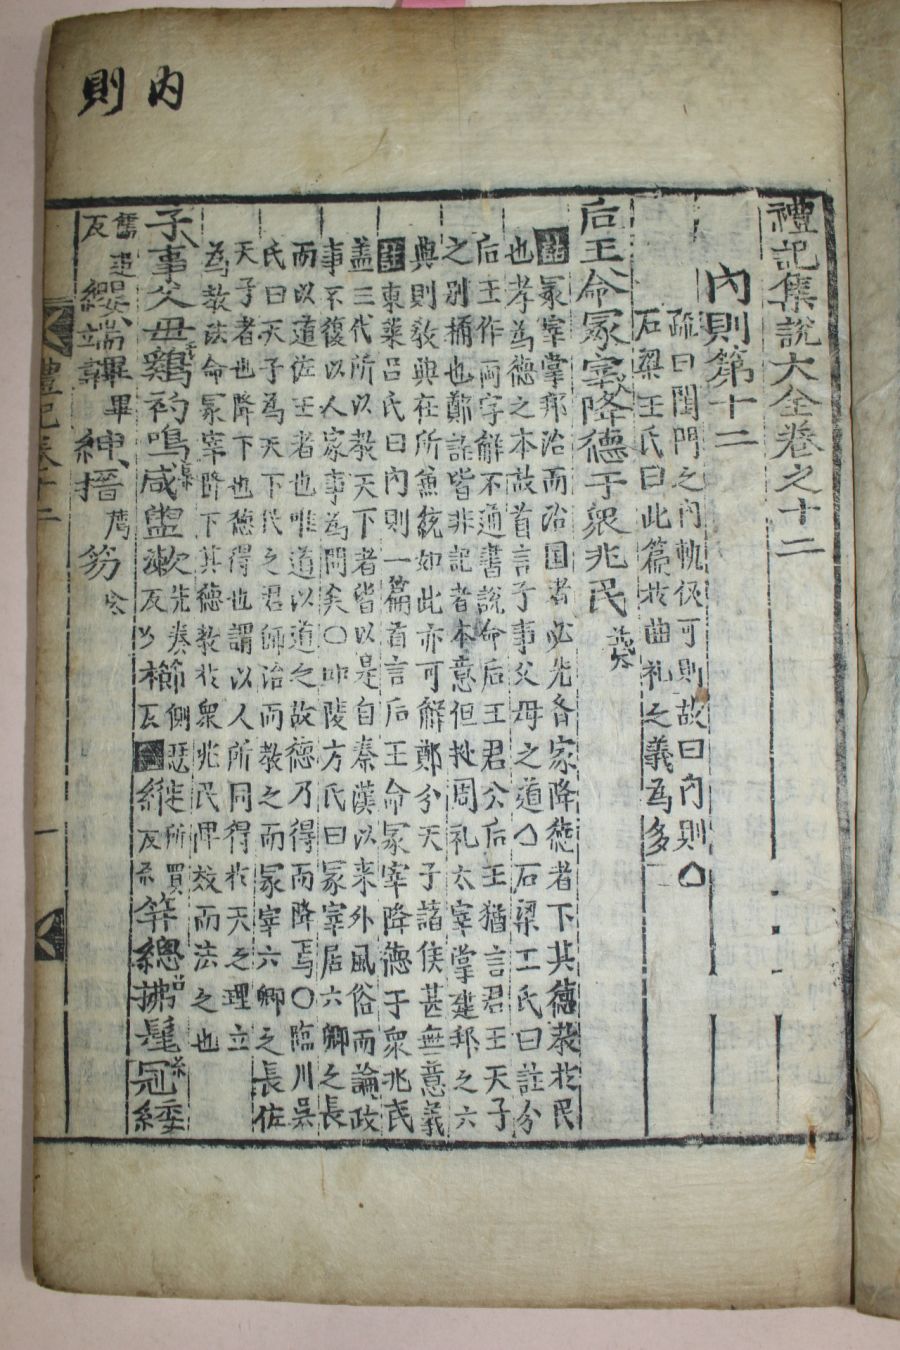 內則
禮記集說大全卷之十二
內則第十二
疏曰閨門之內軌仪可則故曰內則○
石梁王氏曰此篇於曲礼之義爲多
后王命冢宰降德于衆兆民
註冢宰掌邦治而治国者必先齐家降德者下其德教於民
也孝爲德之本故首言子事父母之道○石梁王氏曰註分
后王作两字解不通書說命后王君公后王猶言君王天子
之别稱也鄭註皆非記者本意但拠周礼太宰掌建邦之六
典則教典在所兼統如此亦可解鄭分天子諸侯甚無意義
註東萊呂氏曰內則一篇首言后王命冢宰降德于衆兆民
盖三代所以教天下者皆以是自秦漢以来外風俗而論政
事不復以人家事爲問矣○叩陵方氏曰冢宰居六卿之長
而以道佐王者也唯道以道之故德乃得而降焉○臨川吳
氏曰天子爲天下代之君師治而教之而冢宰六卿之長佐
天子者也降下也德得也謂以人所同得於天之理立
爲教法命冢宰降下其德教於衆兆民俾效而法之也
子事父母鷄初鳴咸盥漱櫛縰笄總拂髦冠緌
纓端韠紳搢笏
禮記卷十二 一